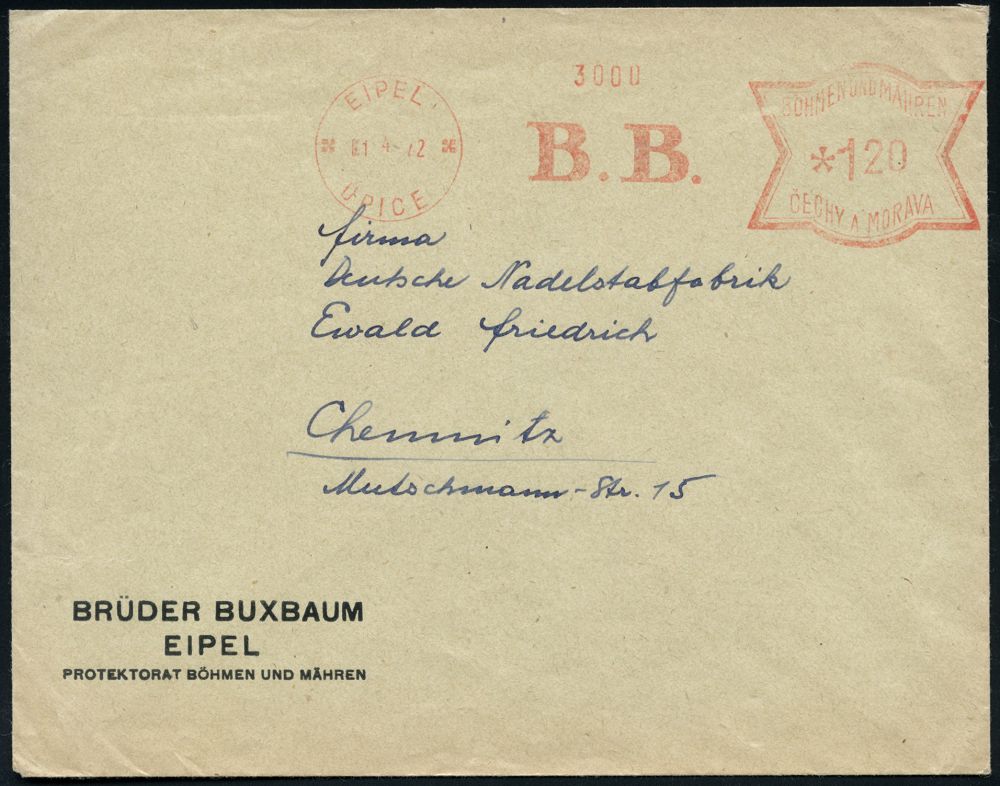 3000
EIPEL
ÚPICE
B. B.
BÖHMEN UND MÄHREN
*120
ČECHY A MORAVA
firma
Deutsche Nadelstabfabrik
Ewald Friedrich
Chemnitz
Mutschmann-Str. 15
BRÜDER BUXBAUM
EIPEL
PROTEKTORAT BÖHMEN UND MÄHREN